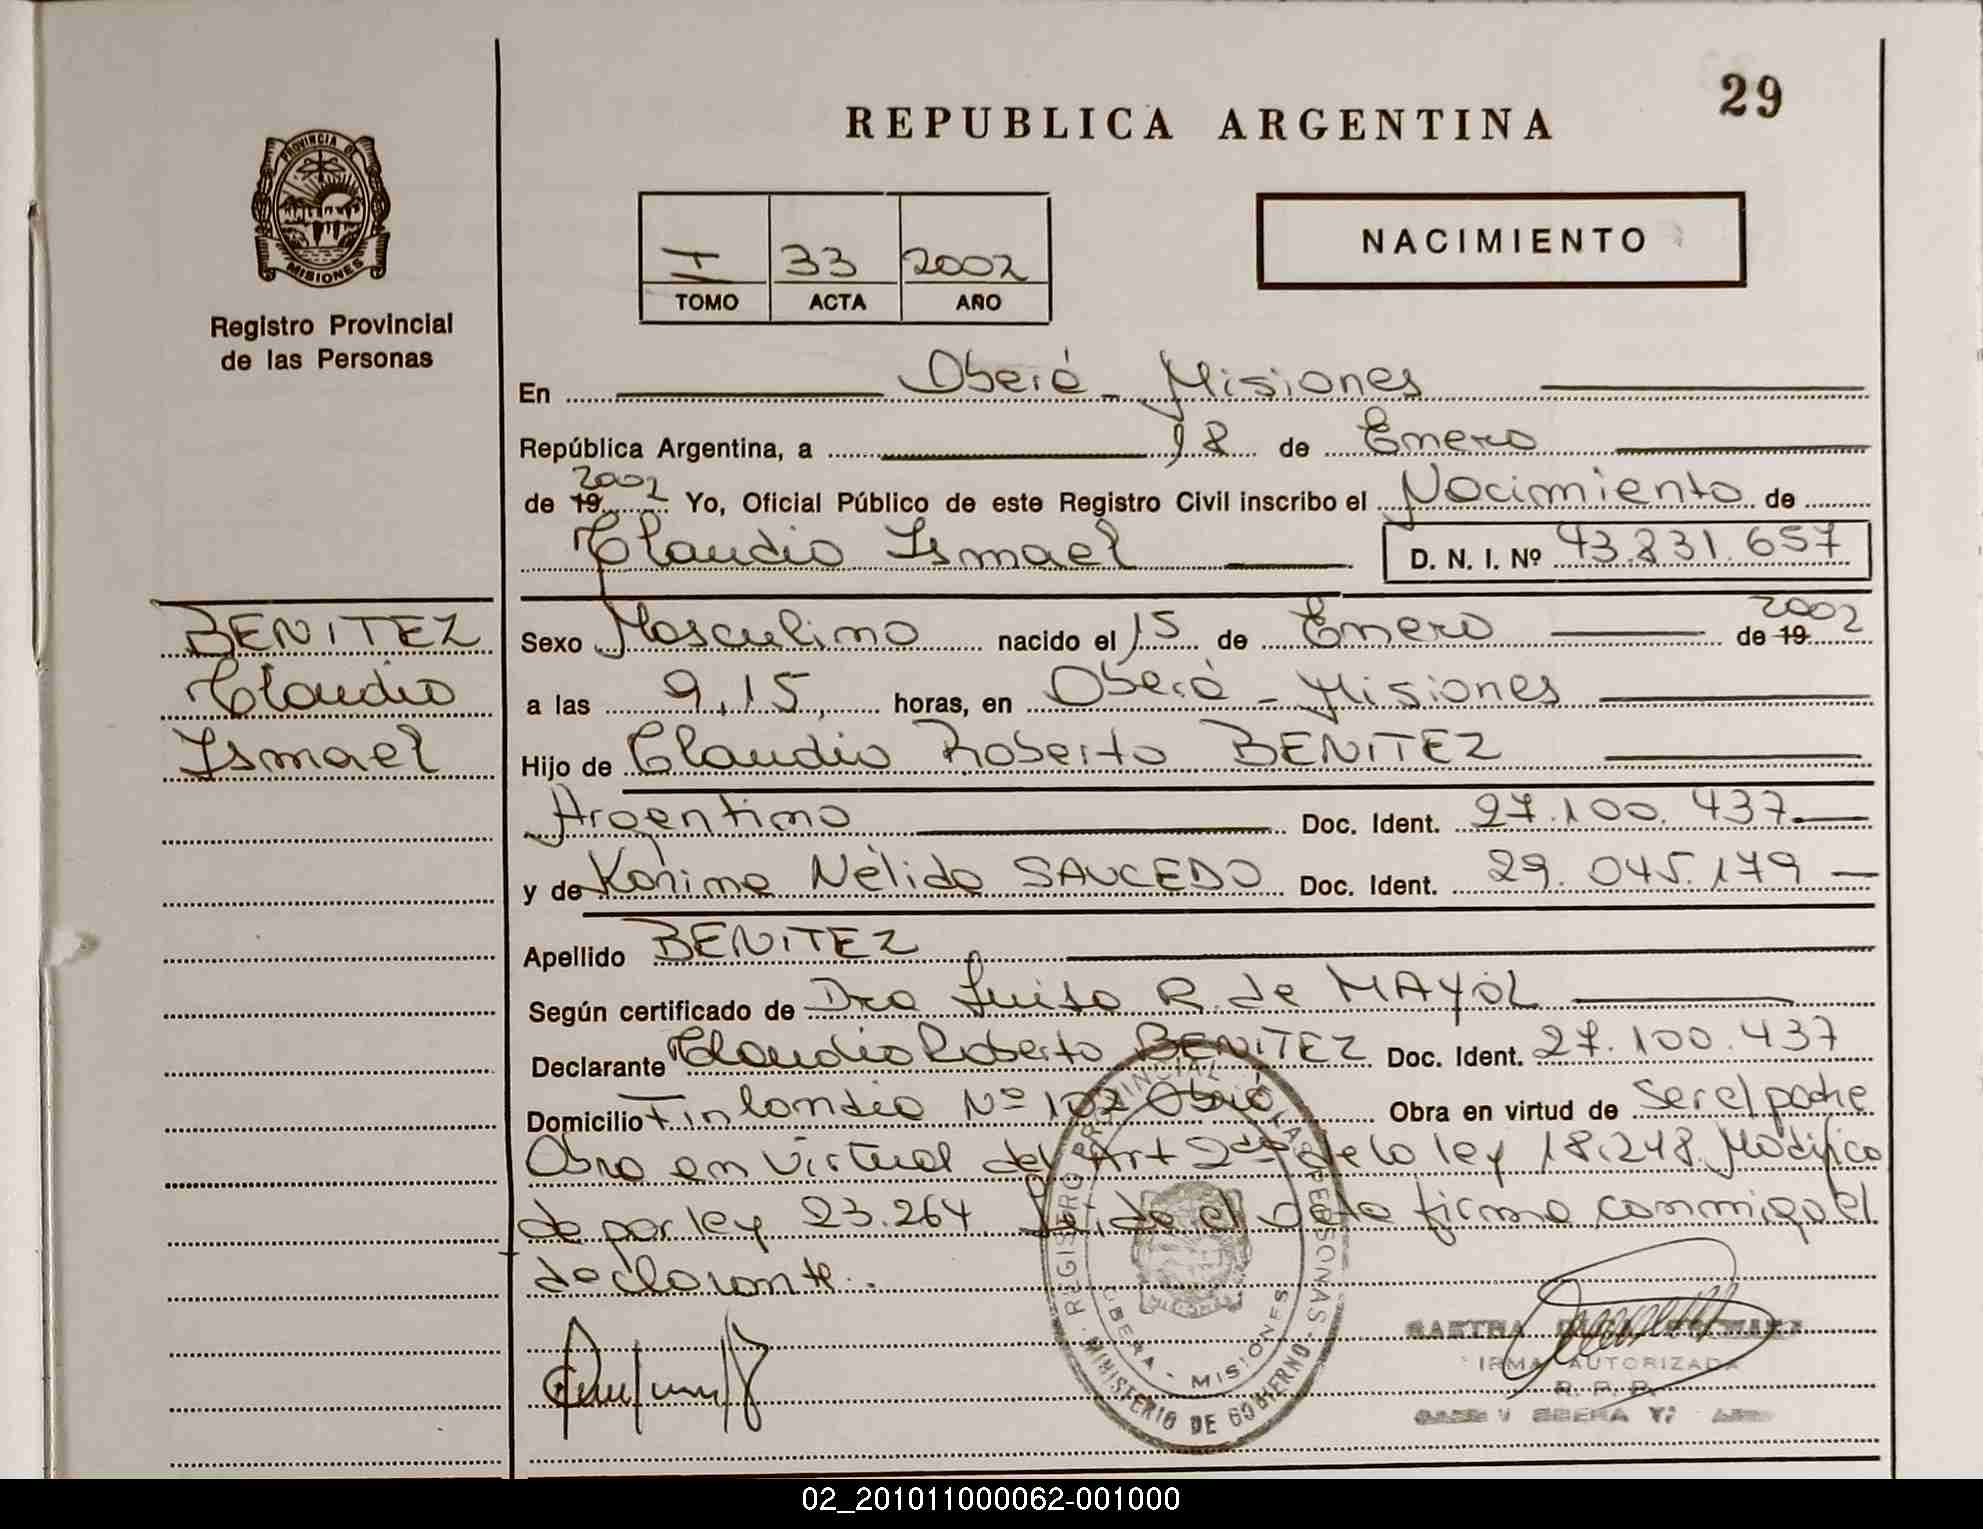 29
REPUBLICA ARGENTINA
PROVINCIA DE
MISIONES
Registro Provincial
de las Personas
I 33 2002
TOMO ACTA AÑO
NACIMIENTO
En Oberá - Misiones
República Argentina, a 18 de Enero
2002
de 19 Yo, Oficial Público de este Registro Civil inscribo el Nacimiento de
Claudio Ismael D. N. I. Nº 43.831.657
BENITEZ
Claudio
Ismael
2002
Sexo Masculino nacido el 15 de Enero de 19
a las 9,15, horas, en Oberá - Misiones
Hijo de Claudio Roberto BENITEZ
Argentino Doc. Ident. 27.100.437
y de Karina Nélida SAUCEDO Doc. Ident. 29.045.179
Apellido BENITEZ
Según certificado de Dra Luisa R. de MAYOL
Declarante Claudio Roberto BENITEZ Doc. Ident. 27.100.437
Domicilio Finlandia Nº 102 Oberá Obra en virtud de Ser el padre
Obra en virtud del Art 2do de la ley 18.248 Modifica
da por ley 23.264. Leída el acta firma conmigo el
declarante.
REGISTRO PROVINCIAL DE LAS PERSONAS
OBERA - MISIONES
MINISTERIO DE GOBIERNO
FIRMA AUTORIZADA
R. P. P.
02_201011000062-001000